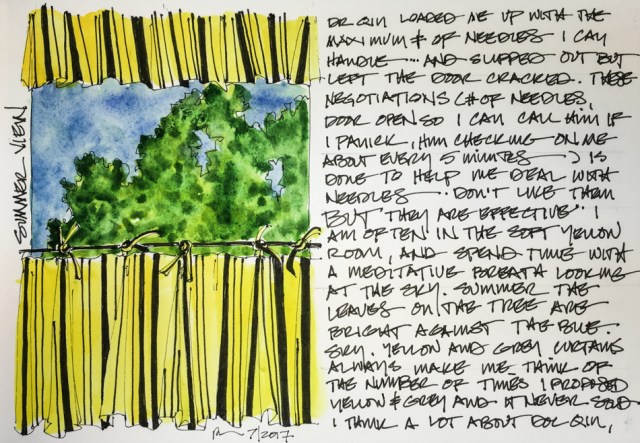 SUMMER VIEW
DR QIN LOADED ME UP WITH THE
MAXIMUM # OF NEEDLES I CAN
HANDLE --- AND SLIPPED OUT BUT
LEFT THE DOOR CRACKED. THESE
NEGOTIATIONS (# OF NEEDLES,
DOOR OPEN SO I CAN CALL HIM IF
I PANICK, HIM CHECKING ON ME
ABOUT EVERY 5 MINUTES --) IS
DONE TO HELP ME DEAL WITH
NEEDLES -- DON'T LIKE THEM
BUT "THEY ARE EFFECTIVE" I
AM OFTEN IN THE SOFT YELLOW
ROOM, AND SPEND TIME WITH
A MEDITATIVE BREATH LOOKING
AT THE SKY. SUMMER THE
LEAVES ON THE TREE ARE
BRIGHT AGAINST THE BLUE
SKY. YELLOW AND GREY CURTAINS
ALWAYS MAKE ME THINK OF
THE NUMBER OF TIMES I PROPOSED
YELLOW & GREY AND IT NEVER SOLD
I THINK A LOT ABOUT DOC QIN,
7/2017